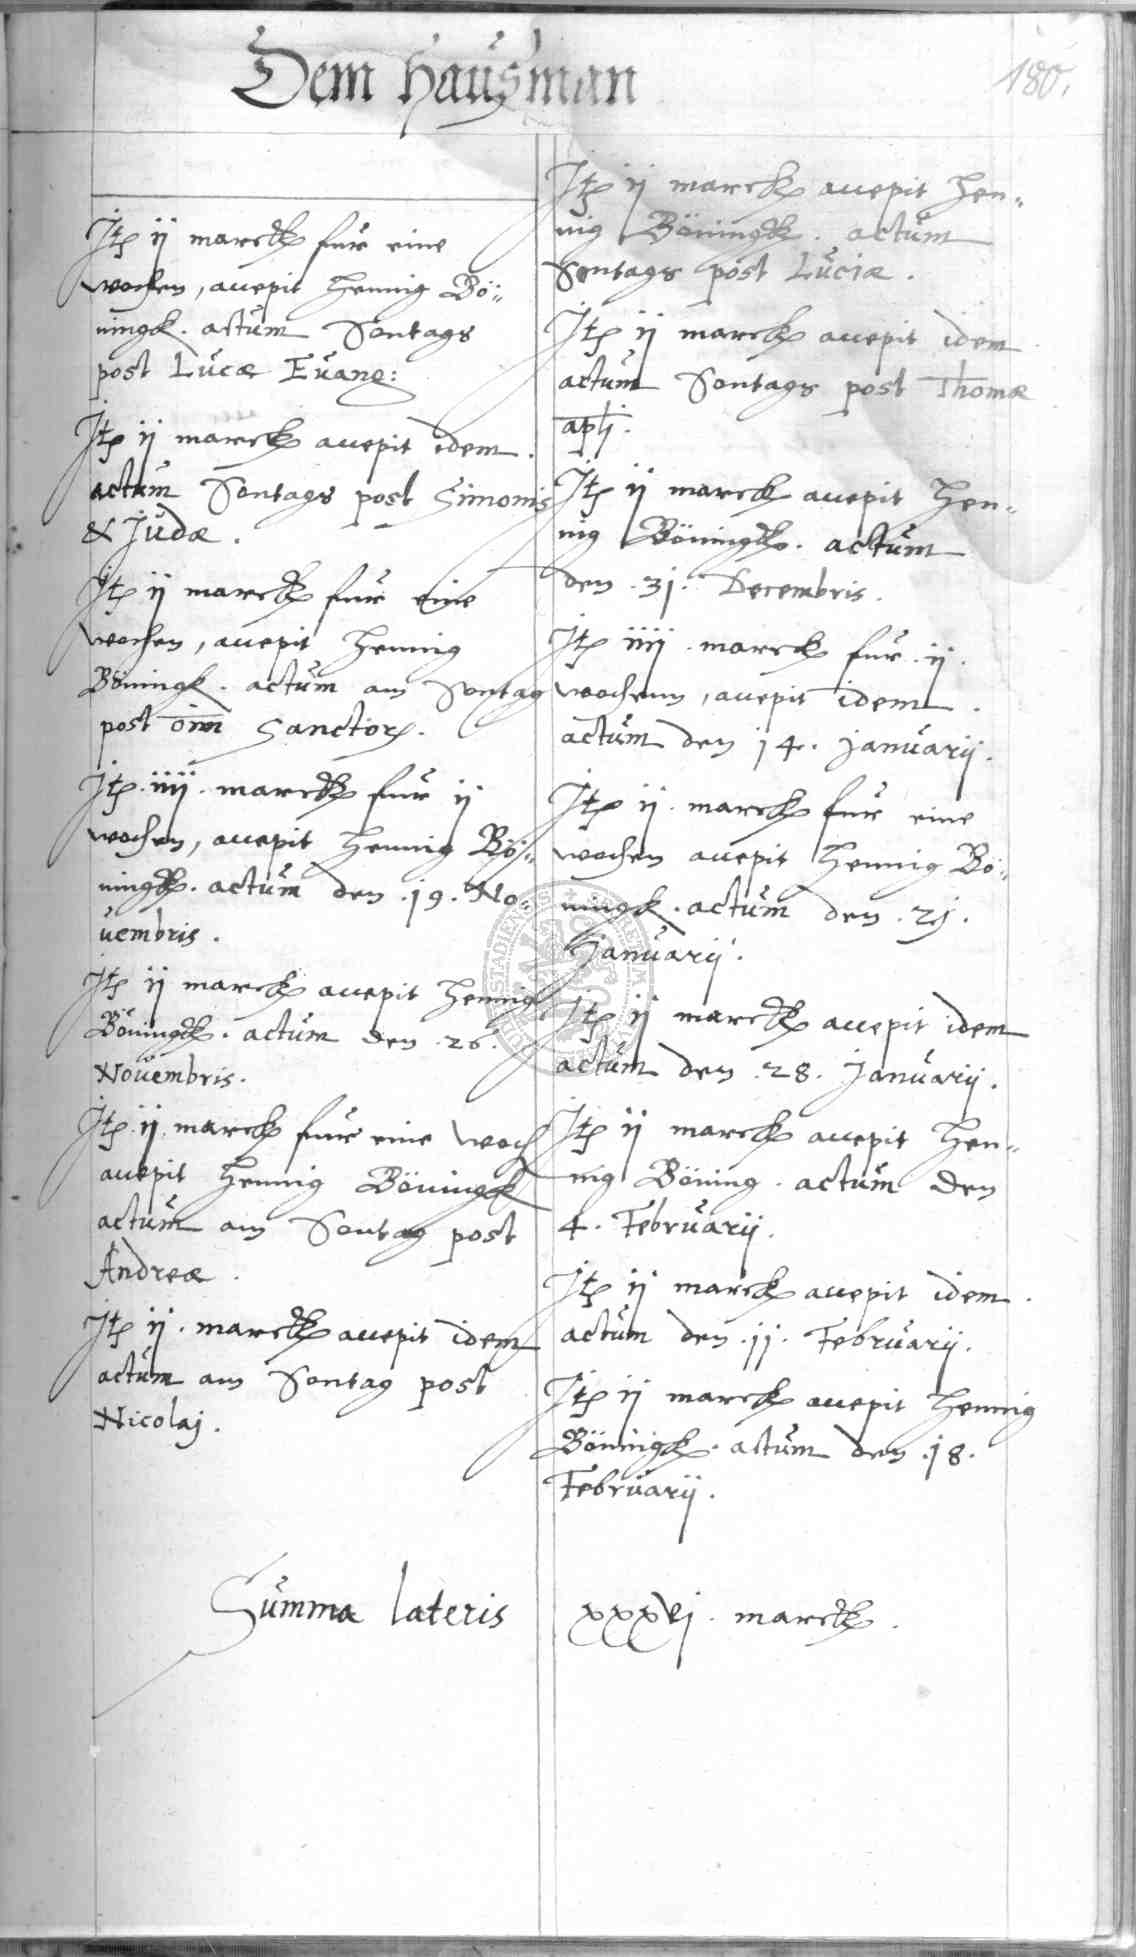 Dem Hausman
180.
Itē ij marck für eine
wochen, accepit Hennig Bö-
ningk. actum Sontags
post Lucæ Evang:
Itē ij marck accepit idem.
actum Sontags post Simonis
& Judæ.
Itē ij marck für eine
wochen, accepit Hennig
Böningk. actum am Sontag
post oīm Sanctorꝝ.
Itē .iiij. marck für ij
wochen, accepit Hennig Bö-
ningk. actum den .19. No-
uembris.
Itē ij marck accepit Hennig
Böningk. actum den .26.
Nouembris.
Itē .ij. marck für eine woch
accepit Hennig Böningk
actum am Sontag post
Andreæ.
Itē ij. marck accepit idem
actum am Sontag post
Nicolaj.
Itē ij marck accepit Hen-
nig Böningk. actum
Sontags post Luciæ.
Itē ij marck accepit idem
actum Sontags post Thomæ
apłi.
Itē ij marck accepit Hen-
nig Böningk. actum
den .31. Decembris.
Itē iiij. marck für .ij.
wochenn, accepit idem.
actum den 14. Januarij.
Itē ij. marck für eine
wochen accepit Hennig Bö-
ningk. actum den .21.
Januarij.
Itē ij marck accepit idem
actum den .28. Januarij.
Itē ij marck accepit Hen-
nig Böning. actum den
4. Februarij.
Itē ij marck accepit idem.
actum den .11. Februarij.
Itē ij marck accepit Hennig
Böningk. actum den .18.
Februarij.
Summa lateris xxxvj. marck.